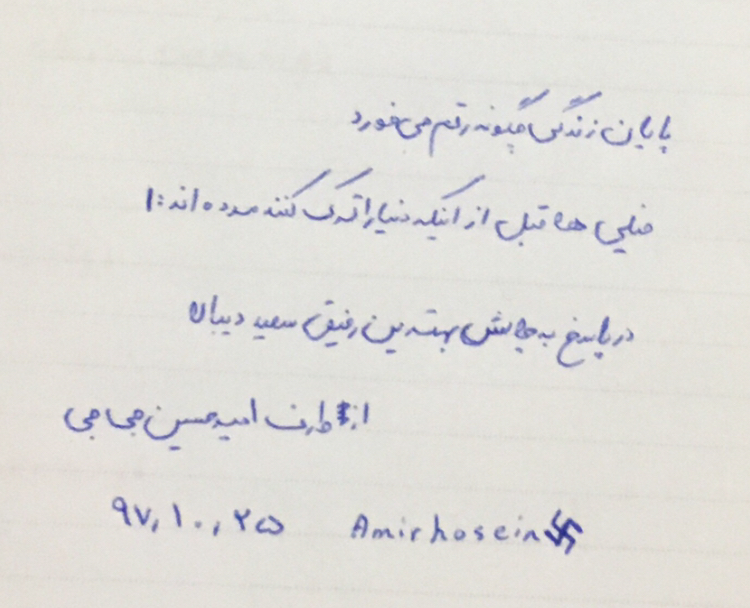 پایان زندگی چگونه رقم می خورد
خیلی ها قبل از اینکه دنیا را ترک کنند مرده اند :ا
در پاسخ به چالش بهترین رفیق سعید دیبال
از طرف امیرحسین حجاجی
۹۷,۱۰,۲۵ Amirhosein 卐